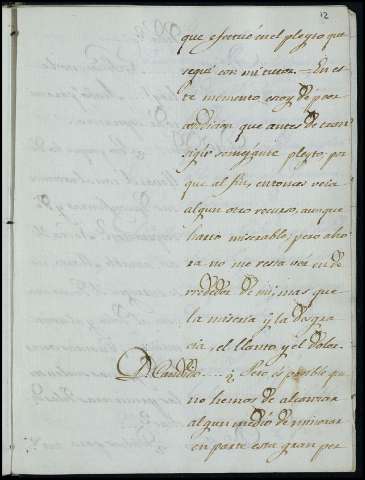 12
que efectuó en el pleyto que
seguí con mi tutor. = En es-
te momento estoy de peor
condicion que antes de tran-
sigir semejante pleyto, por-
que al fin, entonces veia
algun otro recurso, aunque
harto miserable; pero aho-
ra no me resta ver en de-
rrededor de mi, mas que
la miseria y la desgra-
cia, el llanto, y el dolor.
D. Candido.... ¿Pero es posible que
no hemos de alcanzar
algun medio de minorar
en parte esta gran per-